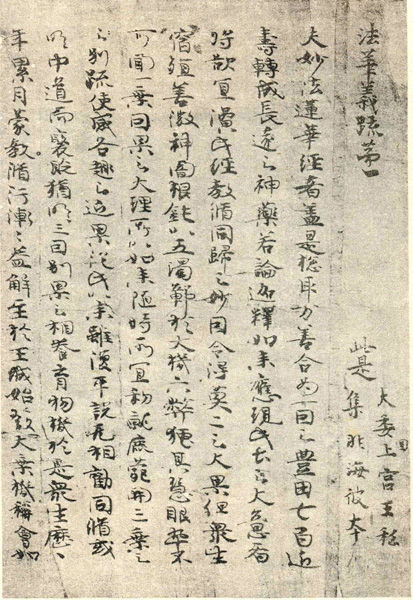 法華義疏第一
此是
大委国上宮王私
集非海彼本
夫妙法蓮華經者蓋是惣取万善合為一因之豊田七百近
壽轉成長遠之神藥若論迦釋如來應現此土之大意者
将欲宜演此經教脩同歸之妙因令得莫二之大果但衆生
宿殖善微神闇根鈍以五濁鄣於大機六弊掩其慧眼卒不
可聞一乗因果之大理所以如來随時所宜初就鹿苑開三乗之
之別疏使感各趣之近果従此以來雖復平説无相勸同脩或
明中道而褒貶猶明三因別果之相養育物機於是衆生歴々
年累月蒙教脩行漸々益解至於王城始發大乗機稱會如